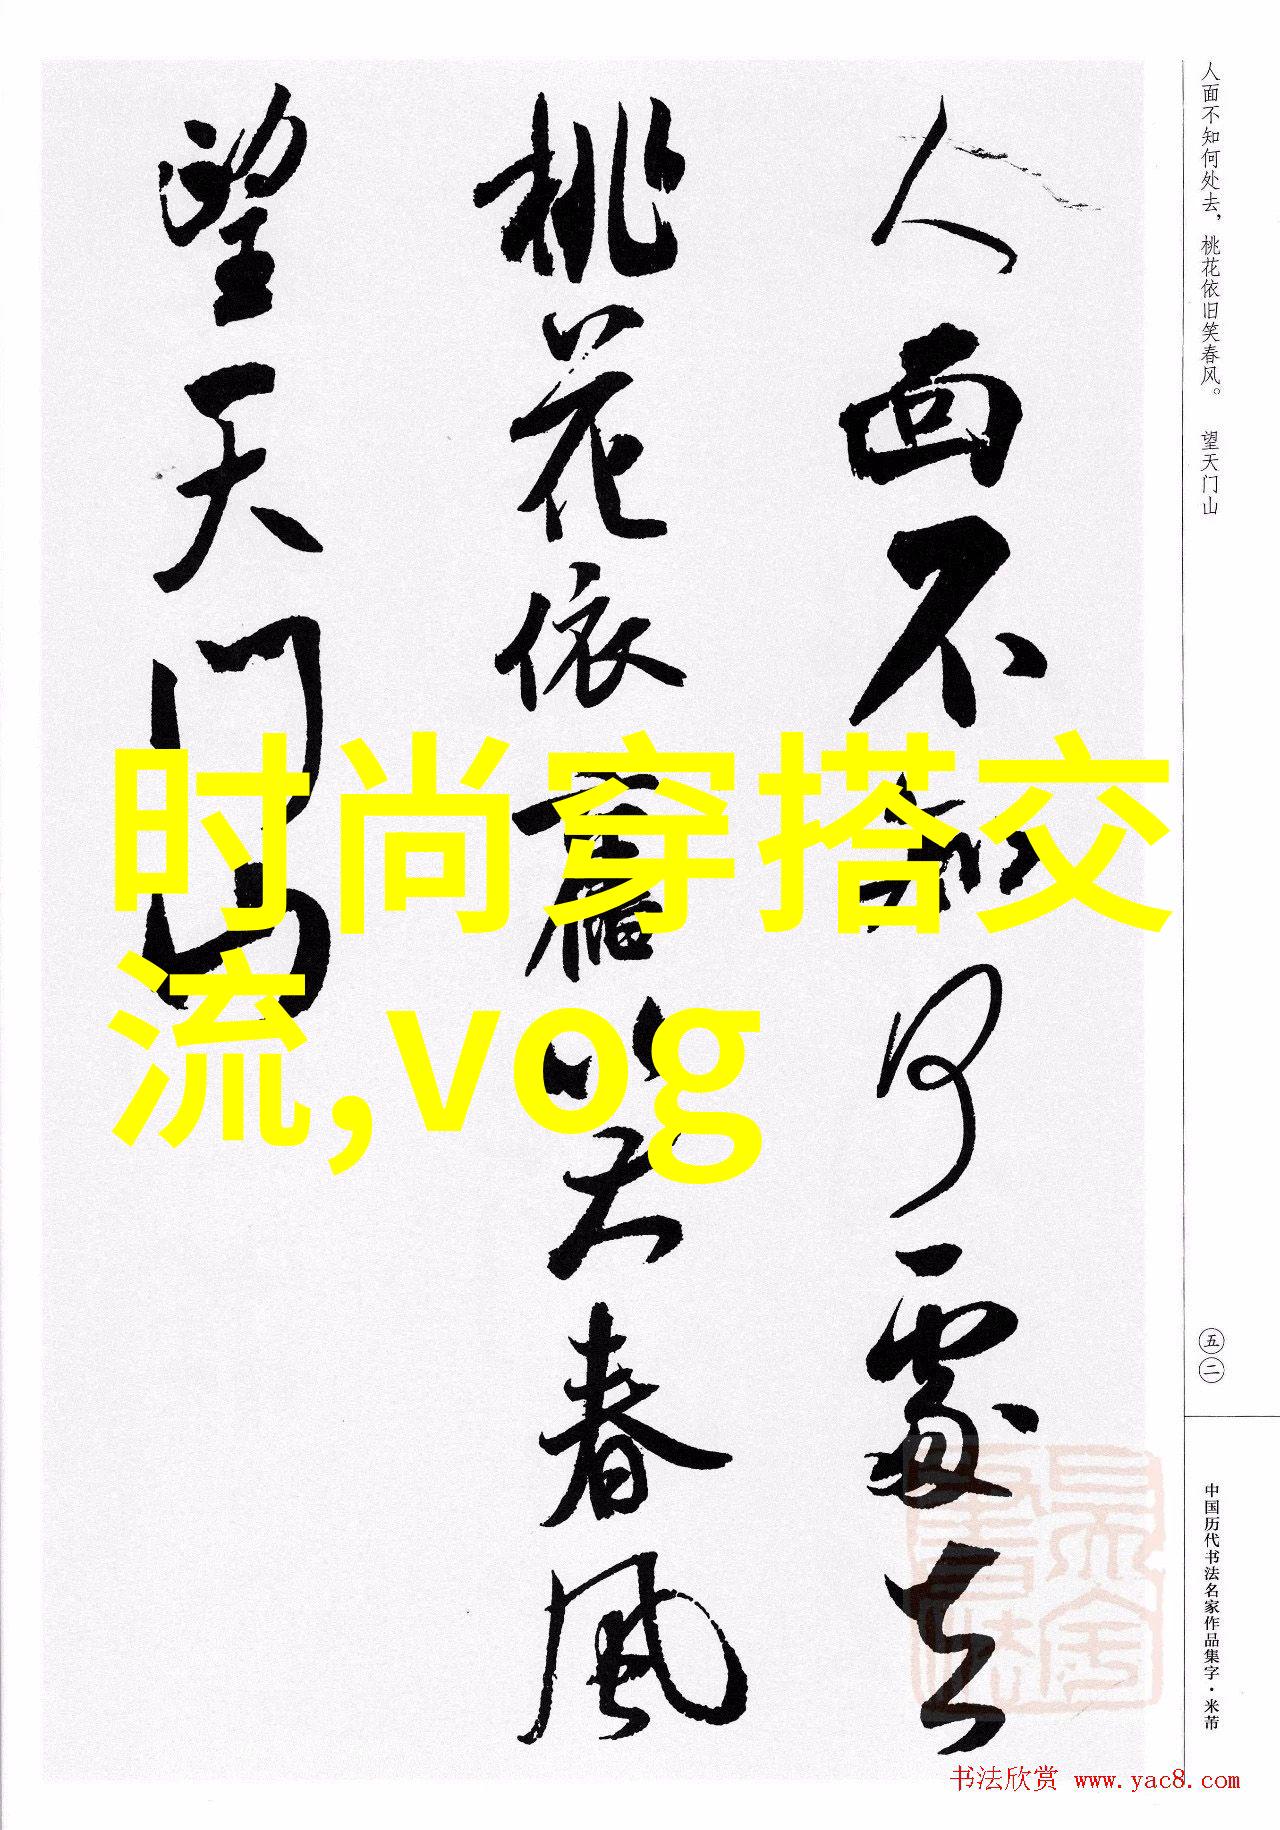 人面不知何處去
桃花依舊笑春風
望天门山
时尚穿搭交
流,vog
人面不知何处去，桃花依旧笑春风。 望天门山
五二
中国历代书法名家作品集字·米芾
书法欣赏 www.yac8.com